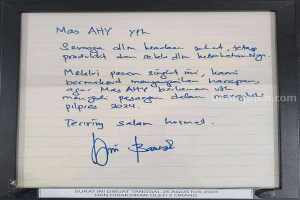 Mas AHY yth
Semoga dlm keadaan sehat, tetap
produktif dan selalu dlm keberkahanNya.
Melalui pesan singkat ini, kami
bermaksud menyampaikan harapan,
agar Mas AHY berkenan utk
menjadi pasangan dalam mengikuti
pilpres 2024.
Teriring salam hormat.
SURAT INI DIBUAT TANGGAL 25 AGUSTUS 2023